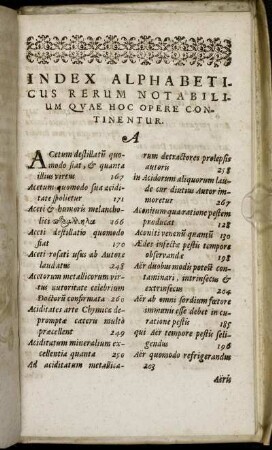 INDEX ALPHABETI-
CUS RERUM NOTABILI-
UM QVAE HOC OPERE CON-
TINENTUR.
A
ACetum destillatũ quo-
modo fiat, & quanta
illius virtus 167
Acetum quomodo sua acidi-
tate spolietur 171
Aceti & humoris melancho-
lici 166
Aceti destillatio quomodo
fiat 170
Aceti rosati usus ab Autore
laudatur 248
Acetorum metallicorum vir-
tus autoritate celebrium
Doctorũ confirmata 260
Aciditates arte Chymica de-
promptæ cæteris multò
præcellent 249
Aciditatum mineralium ex-
cellentia quanta 250
Ad aciditatum metallica-
rum detractores prolepsis
autoris 258
in Acidorum aliquorum lau-
de cur diutius Autor im-
moretur 267
Aconitum qua ratione pestem
producat 128
Aconiti venenũ quantũ 170
Ædes infectæ pestis tempore
observandæ 198
Aër duobus modis potest con-
taminari, intrinsecùs &
extrinsecùs 204
Aër ab omni sordium fœtore
immunis esse debet in cu-
ratione pestis 185
qui Aër tempore pestis seli-
gendus 196
Aër quomodo refrigerandus
203
Aëris